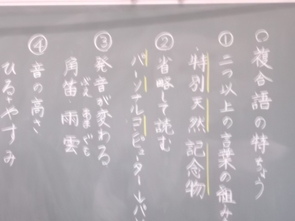 ○複合語の特ちょう
①二つ以上の言葉の組み
・特別天然記念物
②省略して読む
パーソナルコンピューター→パ
③発音が変わる
角笛・雨雲
④音の高さ
ひるやすみ